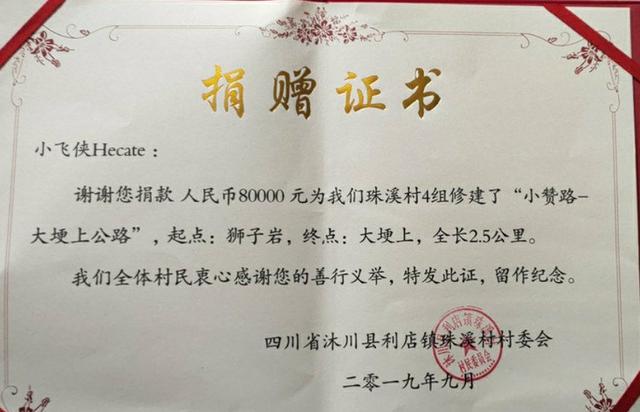 捐赠证书
小飞侠Hecate：
谢谢您捐款 人民币80000 元为我们珠溪村4组修建了“小赞路-
大埂上公路”，起点：狮子岩，终点：大埂上，全长2.5公里。
我们全体村民衷心感谢您的善行义举，特发此证，留作纪念。
四川省沐川县利店镇珠溪村村委会
二零一九年九月
村民委员会